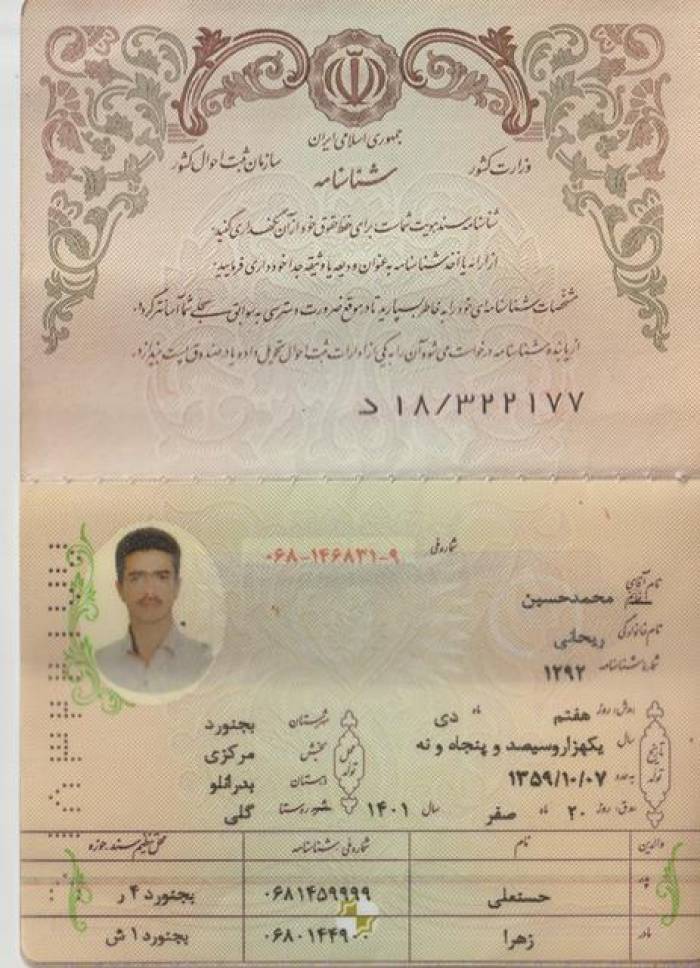 جمهوری اسلامی ایران
وزارت کشور
سازمان ثبت احوال کشور
شناسنامه
شناسنامه سند هویت شماست برای حفظ حقوق خود از آن نگهداری کنید.
از ارائه یا اخذ شناسنامه به عنوان ودیعه یا وثیقه جدا خودداری فرمایید.
مشخصات شناسنامه‌ای خود را به خاطر بسپارید تا در موقع ضرورت دسترسی به سوابق سجلی شما آسانتر گردد.
از یابنده شناسنامه درخواست می شود آن را به یکی از ادارات ثبت احوال تحویل داده یا در صندوق پست بیندازد.
د ۱۸/۳۲۲۱۷۷
شماره ملی ۰۶۸-۱۴۶۸۳۱-۹
نام آقای محمدحسین
نام خانوادگی ریحانی
شماره شناسنامه ۱۲۹۲
تاریخ تولد
روز هفتم ماه دی
سال یکهزاروسیصد و پنجاه و نه
۱۳۵۹/۱۰/۰۷
روز ۲۰ ماه صفر سال ۱۴۰۱
محل تولد
شهرستان بجنورد
بخش مرکزی
دهستان بدرانلو
شهر روستا گلی
والدین نام شماره ملی شناسنامه محل تنظیم سند حوزه
پدر حسنعلی ۰۶۸۱۴۵۹۹۹۹ بجنورد ۴ ر
مادر زهرا بجنورد ۱ ش